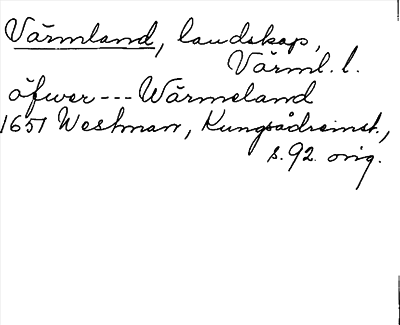 Värmland, landskap,
Värml. l.
öfwer --- Wärmeland
1651 Westman, Kungsådreinst.,
s. 92. orig.